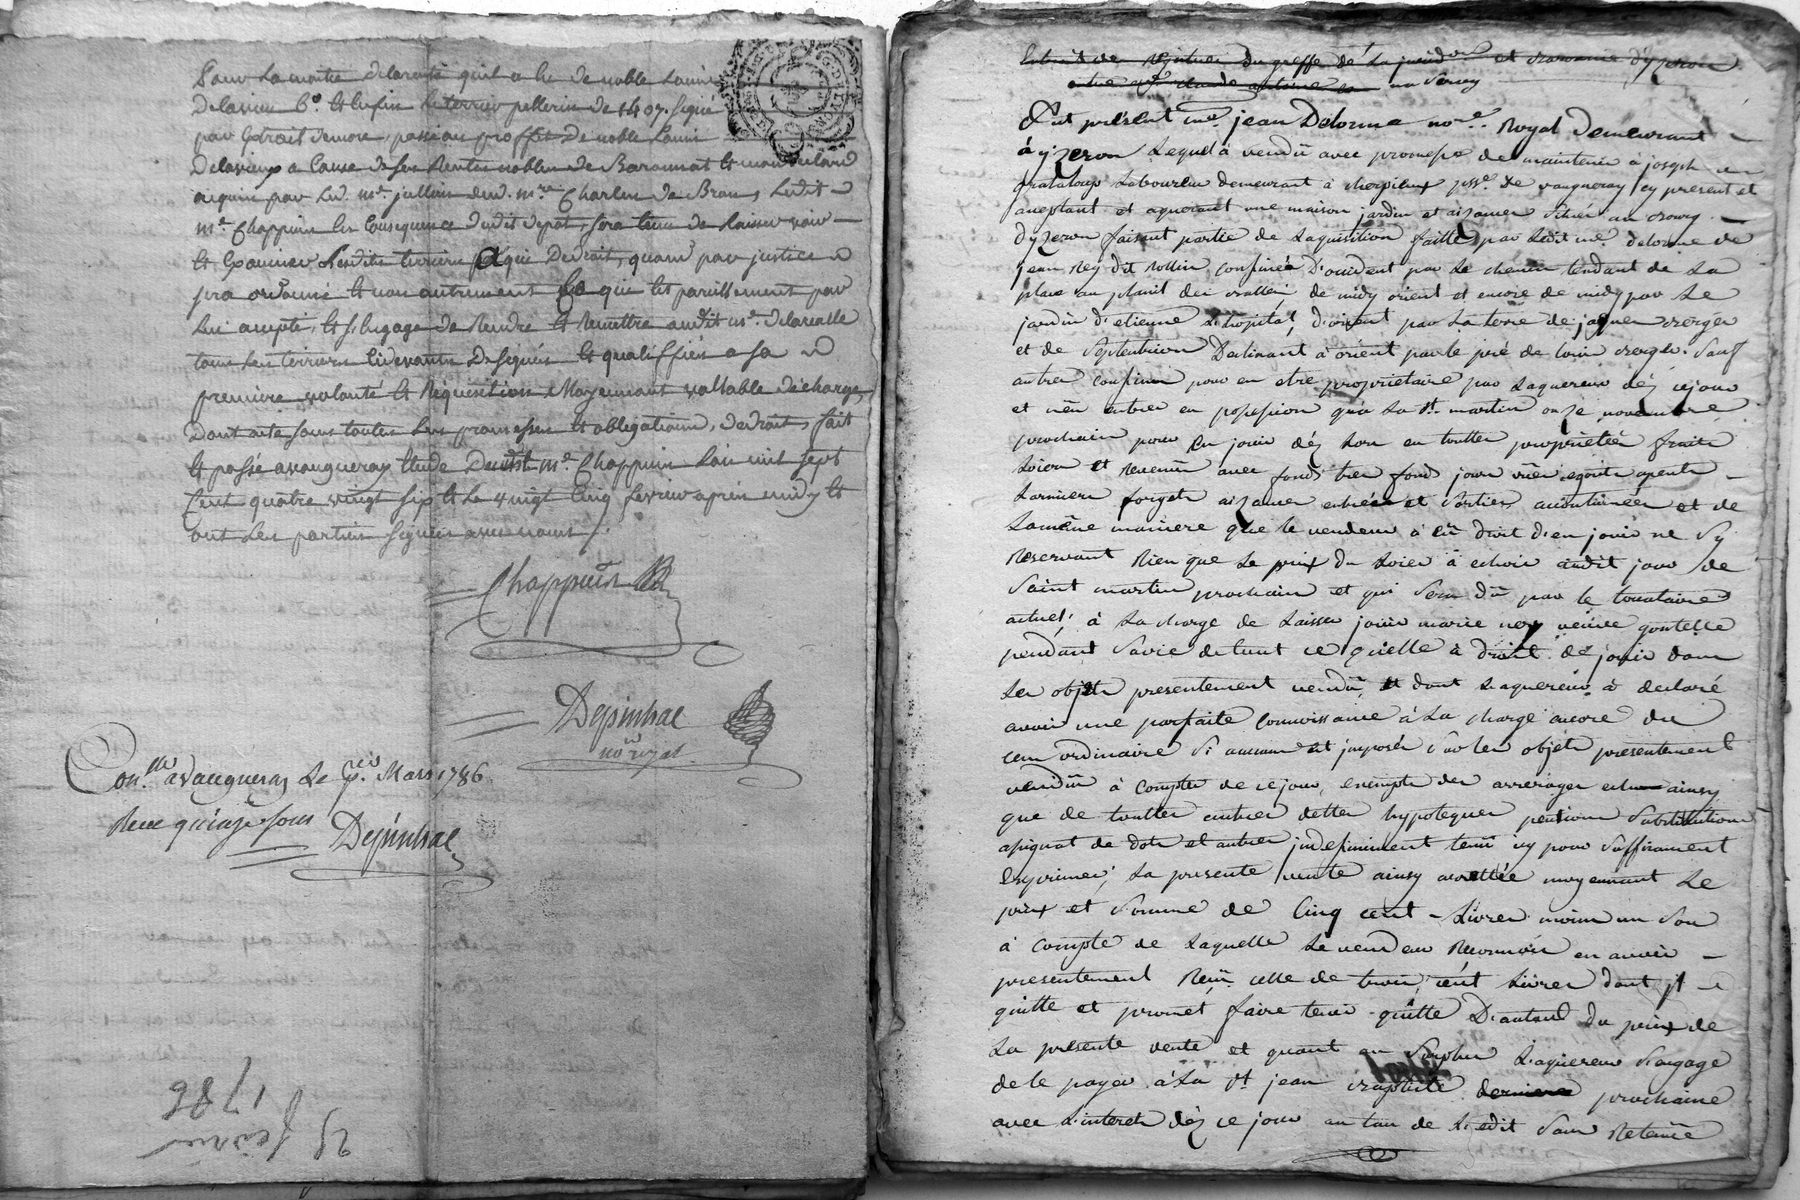 pour la moitié de la rente qu'il a de noble Louis
Delavieu et Enfin le terrier pellerin de 1407. signé
par Extrait passé au proffit De noble Louis
Delavieux a Cause de ses Rentes nobles de Baronnat et
acquis par led. me. jullien dud. me. Charles de Ledit
me. Chappuis En Consequence dudit depot, sera tenu de laisser voir
Et Examiner lesdits terriers a qui De droit, quand par justice
sera ordonné et non autrement Ce que Est pareillement par
Lui accepté, et s'Engage de Rendre Et Remettre audit me.
tous les terriers cidevants Designés Et qualiffiés a sa
premiere volonté Et Requisition Moyennant vallable décharge,
Dont acte sous toutes les promesses Et obligations, de droit, fait
Et passé a vaugneray Etude Dudit me. Chappuis L'an mil sept
Cent quatre vingt six Et le vingt Cinq fevrier après midy Et
ont les parties signées avec nous
Chappuis
Depinhac
no. royal
Con.lle a vaugneray Le pr. Mars 1786
Recu quinze sous
Depinhac
25 fevrier
1786
Extrait des registres du greffe de la et d'yzeron
entre
Fut présent me. jean Delorme nore. Royal demeurant
à yzeron Lequel à vendû avec promesse de maintenir à joseph
grataloup Laboureur demeurant à psse. De vaugneray icy present et
acceptant et aquerant une maison jardin et aisances situés au bourg
d'yzeron faisant partie de Laquisition faitte par Ledit me. delorme de
jean Rey dit Rollin confinée D'occident par le chemin tendant de La
place au des de midy orient et encore de midy par Le
jardin d'etienne L'hopital, d'orient par La terre de jaques verger
et de Septentrion Declinant à orient par le pré de verger. Sauf
autres confins pour en etre proprietaire par Laquereur déz cejour
et n'en entrer en possession qu'a La St. martin onze novembre
prochain pour En jouir déz Lors en touttes proprietées fruits
Loiers et Revenus avec fonds tres fonds jours vües egouts
forgets aisances entrées et Sorties accoutumées et de
La même maniere que le vendeur à eû droit d'en jouir ne Sy
Reservant Rien que Le prix du Loier à echoir audit jour de
Saint martin prochain et qui Sera dû par le locataire
actuel, à La charge de Laisser jouir marie rey veuve gontelle
pendant Sa vie de tout ce qu'elle à droit de jouir dans
Les objets presentement vendûs, et dont Laquereur à declaré
avoir une parfaite connoissance à La charge encore du
cens ordinaire Si aucun est imposé sur les objets presentement
vendûs à compter de ce jour, exempte des arrerages echus ainsy
que de touttes autres dettes hypoteques pensions Substitutions
assignat de dots et autres indefiniment tenû icy pour Suffisament
Exprimer; La presente vente ainsy arrettée moyennant Le
prix et Somme de Cinq cent Livres moins un Sou
à compte de Laquelle Le vendeur Reconnoit en avoir
presentement Reçû celle de trois cent Livres dont il
quitte et promet faire tenir quitte D'autant du prix de
La presente vente et quant au Surplus Laquereur S'engage
de le payer à La St. jean baptiste derniere prochaine
avec L'interet déz ce jour au taux de L'edit Sans Retenüe